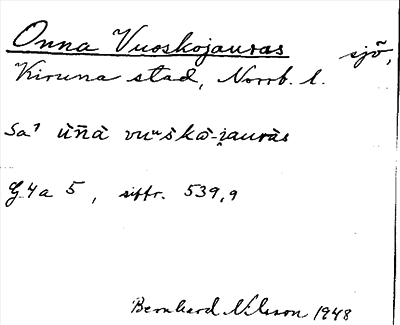 Onna Vuoskojauras sjö,
Kiruna stad, Norrb. l.
Sa⁷ ùñà vuᵘškà-i̯auràs
G 4a 5, siffr. 539,9
Bernhard Nilsson 1948